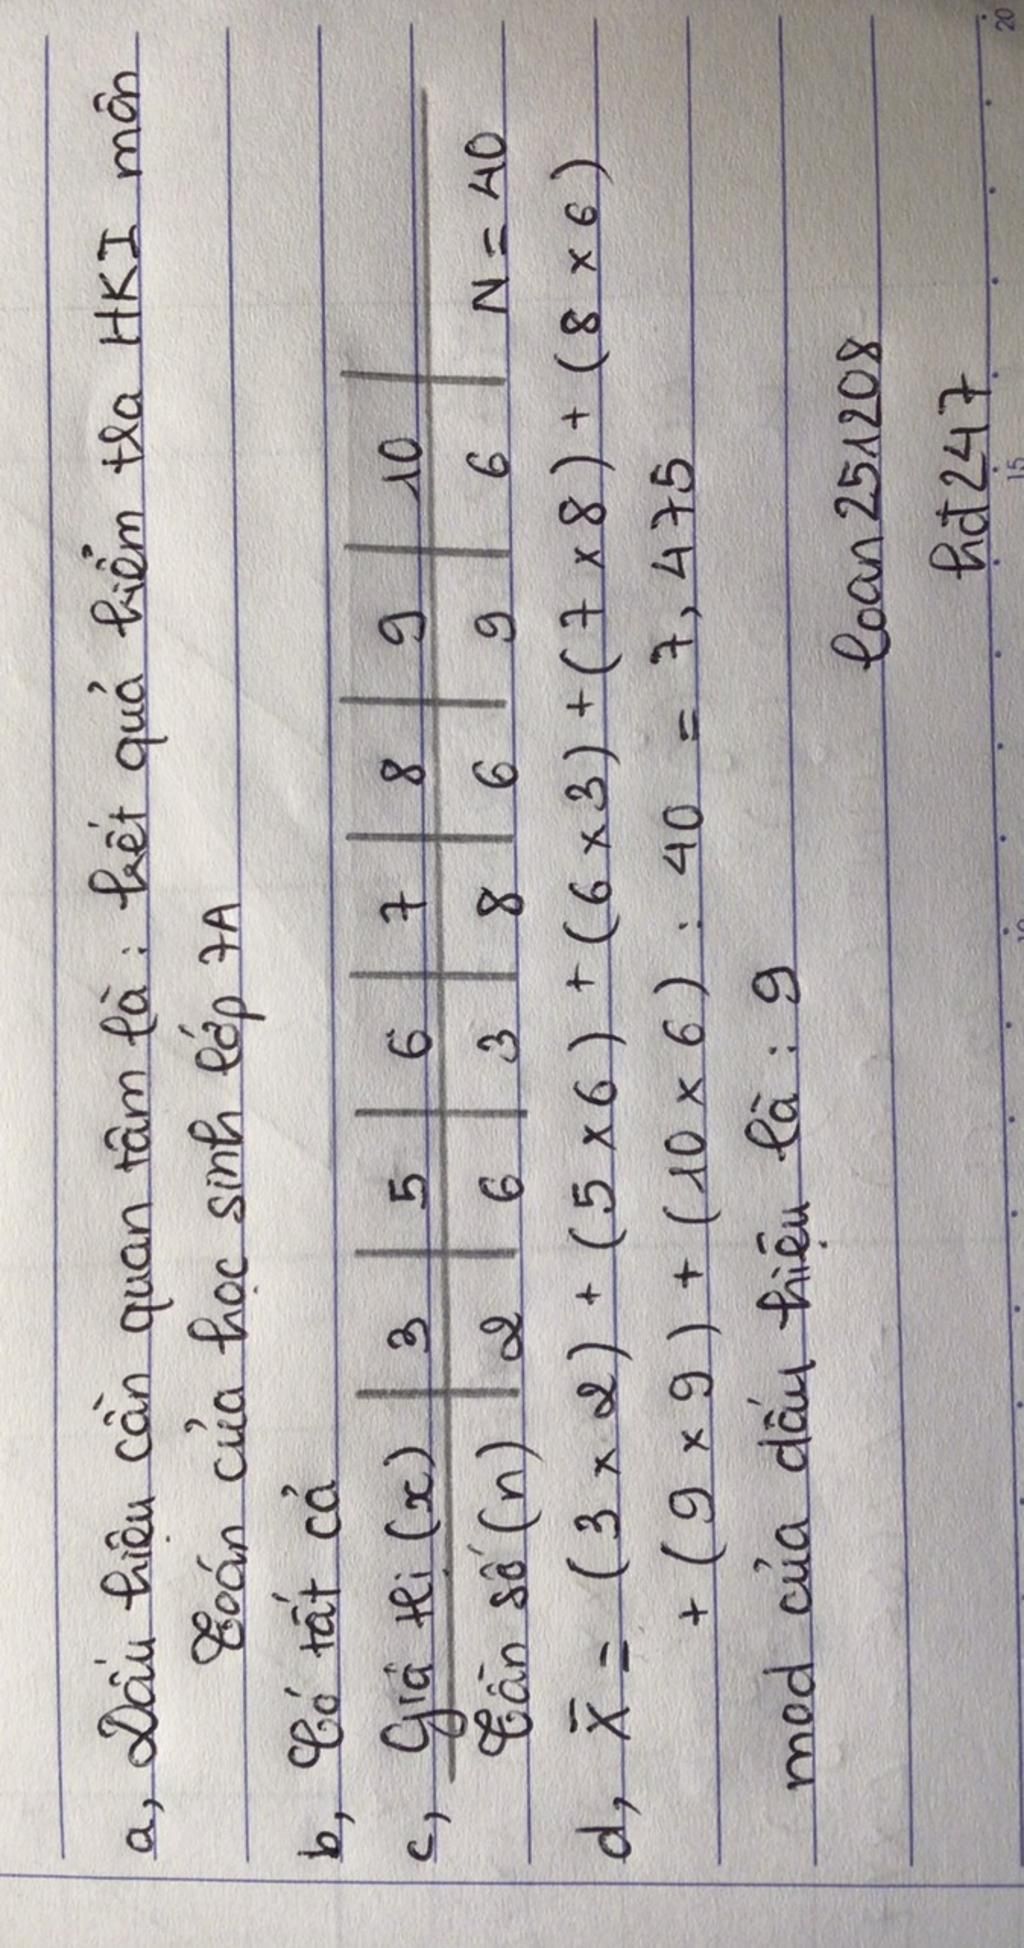 a, Dấu hiệu cần quan tâm là : kết quả kiểm tra HKI môn
Toán của học sinh lớp 7A
b, Có tất cả
c, Giá trị (x) 3 5 6 7 8 9 10
Tần số (n) 2 6 3 8 6 9 6 N = 40
d, X̄ = (3 x 2) + (5 x 6) + (6 x 3) + (7 x 8) + (8 x 6)
+ (9 x 9) + (10 x 6) : 40 = 7,475
mod của dấu hiệu là : 9
loan251208
hđ247
15
20